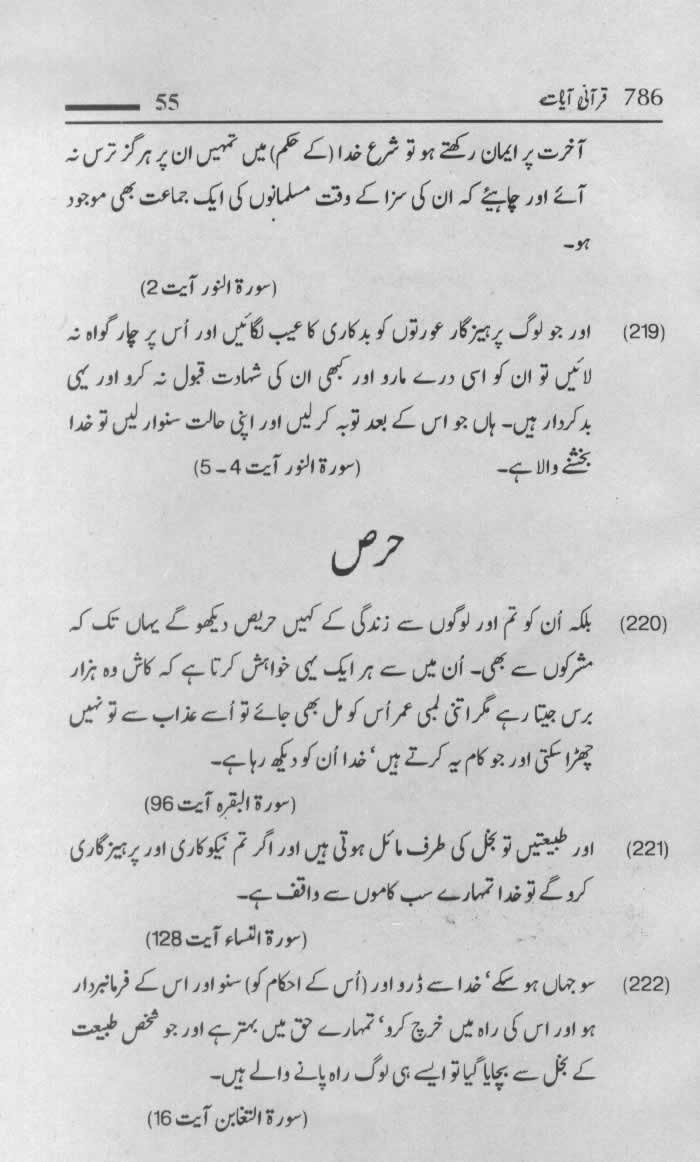 786 قرآنی آیات 55
آخرت پر ایمان رکھتے ہو تو شرع خدا (کے حکم) میں تمہیں ان پر ہرگز ترس نہ
آئے اور چاہیئے کہ ان کی سزا کے وقت مسلمانوں کی ایک جماعت بھی موجود
ہو۔
(سورۃ النور آیت 2)
(219) اور جو لوگ پرہیزگار عورتوں کو بدکاری کا عیب لگائیں اور اُس پر چار گواہ نہ
لائیں تو ان کو اسی درے مارو اور کبھی ان کی شہادت قبول نہ کرو اور یہی
بدکردار ہیں۔ ہاں جو اس کے بعد توبہ کرلیں اور اپنی حالت سنوار لیں تو خدا
بخشنے والا ہے۔ (سورۃ النور آیت 4 ۔ 5)
حرص
(220) بلکہ اُن کو تم اور لوگوں سے زندگی کے کہیں حریص دیکھو گے یہاں تک کہ
مشرکوں سے بھی۔ اُن میں سے ہر ایک یہی خواہش کرتا ہے کہ کاش وہ ہزار
برس جیتا رہے مگر اتنی لمبی عمر اُس کو مل بھی جائے تو اُسے عذاب سے تو نہیں
چھڑا سکتی اور جو کام یہ کرتے ہیں‘ خدا اُن کو دیکھ رہا ہے۔
(سورۃ البقرہ آیت 96)
(221) اور طبیعتیں تو بخل کی طرف مائل ہوتی ہیں اور اگر تم نیکوکاری اور پرہیزگاری
کرو گے تو خدا تمہارے سب کاموں سے واقف ہے۔
(سورۃ النساء آیت 128)
(222) سو جہاں ہو سکے‘ خدا سے ڈرو اور (اُس کے احکام کو) سنو اور اس کے فرمانبردار
ہو اور اس کی راہ میں خرچ کرو‘ تمہارے حق میں بہتر ہے اور جو شخص طبیعت
کے بخل سے بچایا گیا تو ایسے ہی لوگ راہ پانے والے ہیں۔
(سورۃ التغابن آیت 16)